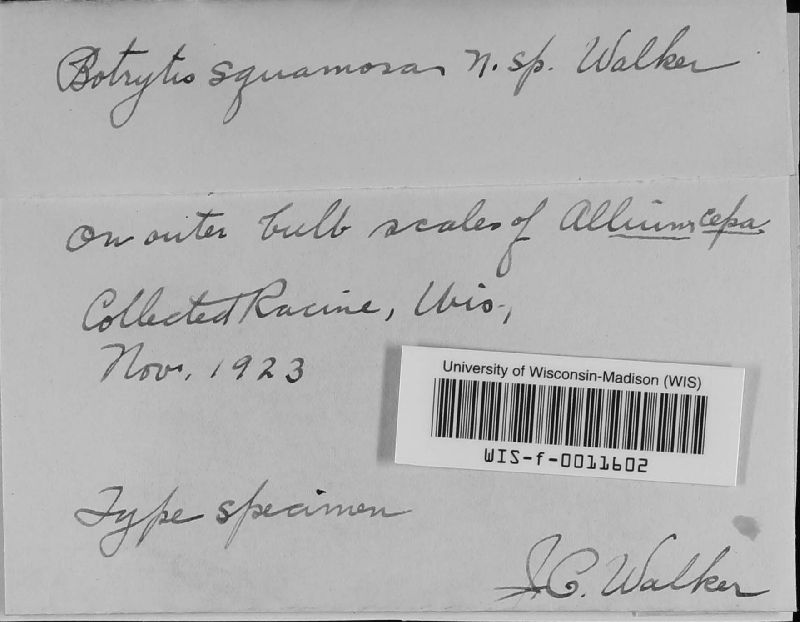 Botrytis squamosa n. sp. Walker
On outer bulb scales of Allium cepa.
Collected Racine, Wis.,
Nov. 1923
University of Wisconsin-Madison (WIS)
WIS-f-0011602
Type specimen
J.C. Walker